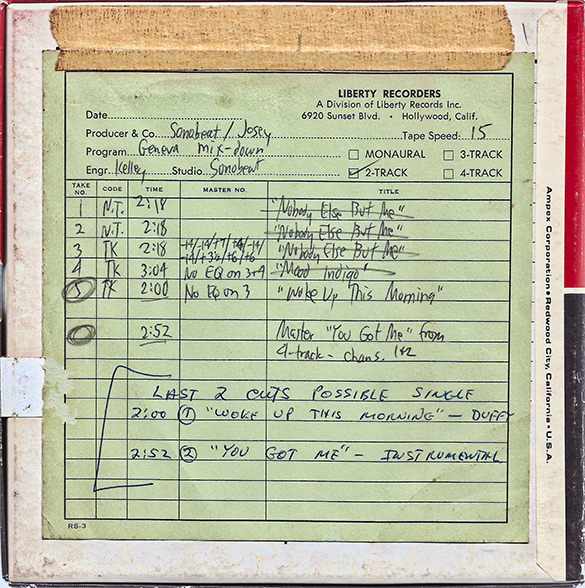 LIBERTY RECORDERS
A Division of Liberty Records Inc.
6920 Sunset Blvd. • Hollywood, Calif.
Date
Producer & Co. Sonobeat / Josey Tape Speed: 15
Program Geneva Mix-down
MONAURAL 3-TRACK
Engr. Kelley Studio Sonobeat 2-TRACK 4-TRACK
TAKE NO. CODE TIME MASTER NO. TITLE
1 N.T. 2:18 "Nobody Else But Me"
2 N.T. 2:18 "Nobody Else But Me"
3 TK 2:18 "Nobody Else But Me"
4 TK 3:04 No EQ on 3+4 "Mood Indigo"
5 TK 2:00 No EQ on 3 "Woke Up This Morning"
2:52 Master "You Got Me" from
4-track - chans. 1+2
LAST 2 CUTS POSSIBLE SINGLE
2:00 1 "WOKE UP THIS MORNING" — DUFFY
2:52 2 "YOU GOT ME" — INSTRUMENTAL
RS-3
Ampex Corporation • Redwood City, California • U.S.A.